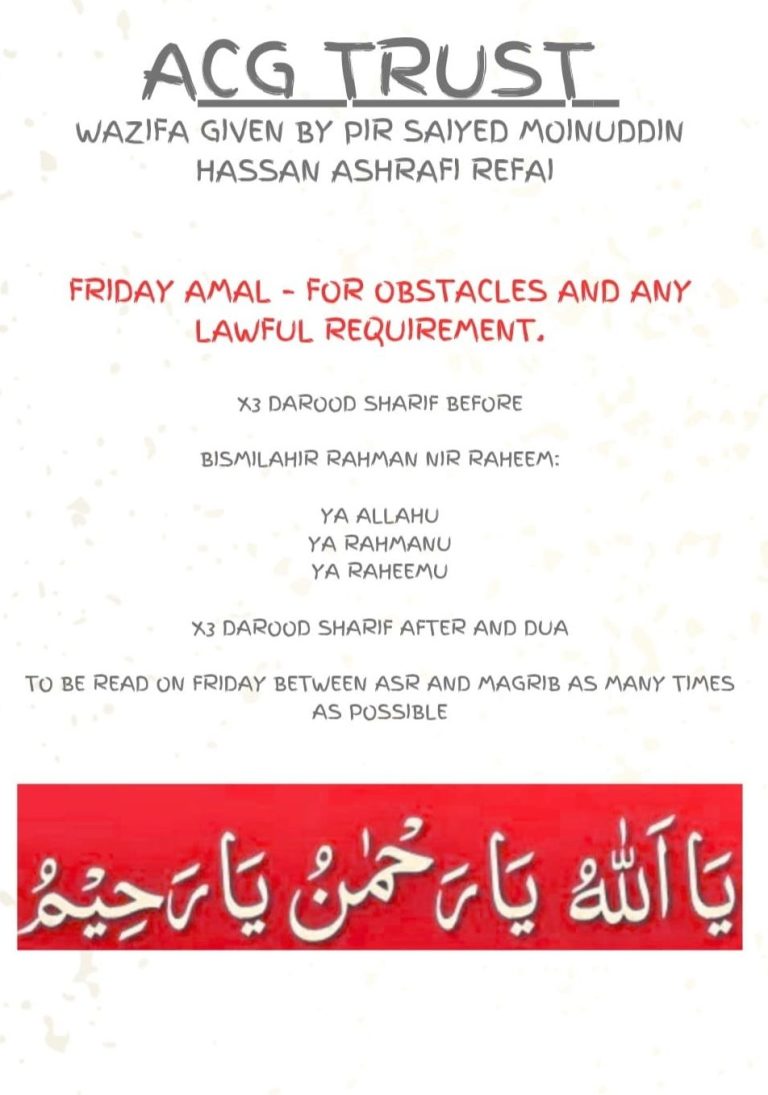 ACG TRUST
WAZIFA GIVEN BY PIR SAIYED MOINUDDIN
HASSAN ASHRAFI REFAI
FRIDAY AMAL - FOR OBSTACLES AND ANY
LAWFUL REQUIREMENT.
X3 DAROOD SHARIF BEFORE
BISMILAHIR RAHMAN NIR RAHEEM:
YA ALLAHU
YA RAHMANU
YA RAHEEMU
X3 DAROOD SHARIF AFTER AND DUA
TO BE READ ON FRIDAY BETWEEN ASR AND MAGRIB AS MANY TIMES
AS POSSIBLE
يَا اَللّٰهُ يَا رَحْمٰنُ يَا رَحِيْمُ